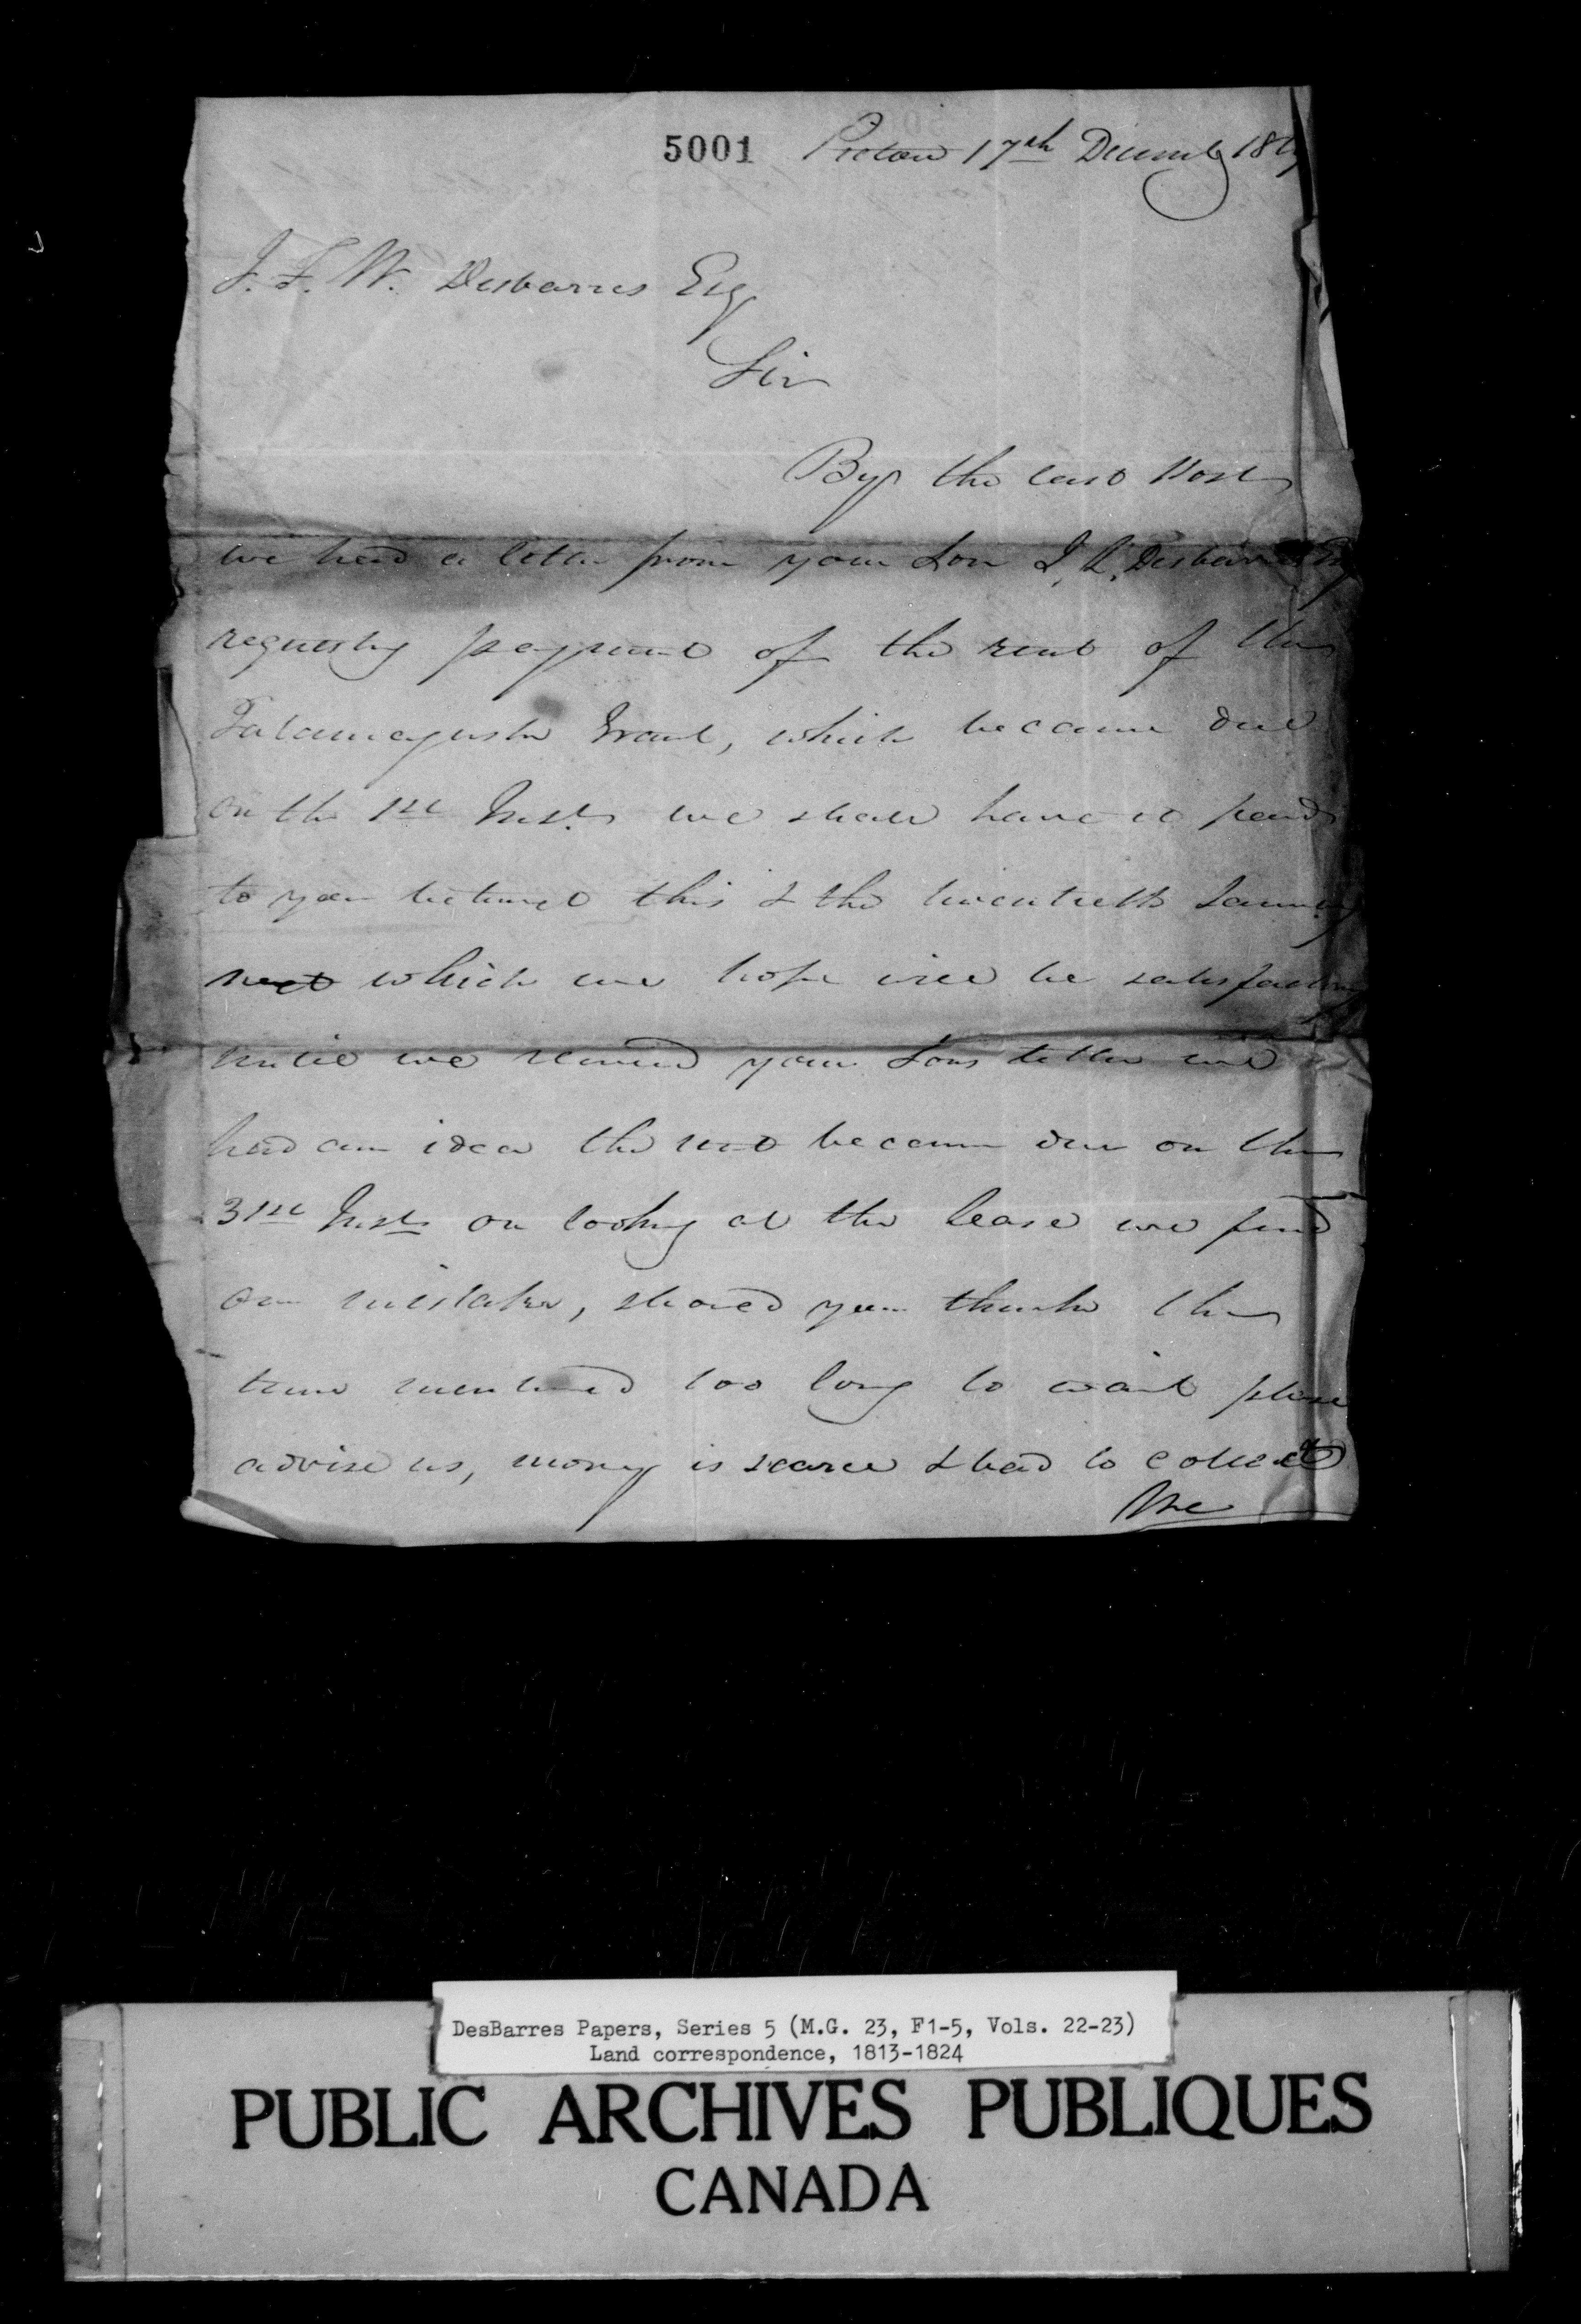 5001 Pictou 17th Decemb 18
J. F. W. Desbarres Esq
Sir
By the last Post
we had a letter from your Son J. L. Desbarres Esq
requestg payment of the rent of the
Tatamagushe Grant, which became due
on the 1st Inst. we shall have it paid
to you betwext this & the twentieth January
next which we hope will be satisfactory
until we received your Sons letter we
had an idea the rent became due on the
31st Inst on lookig at the lease we find
our mistake, should you think the
time mentioned too long to wait please
advise us, money is scarce & bad to collect
We
DesBarres Papers, Series 5 (M.G. 23, F1-5, Vols. 22-23)
Land correspondence, 1813-1824
PUBLIC ARCHIVES PUBLIQUES
CANADA